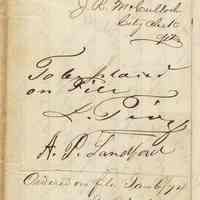 J. R. McCulloch
City Clerk
To be placed
on File
L.
A. P. Landford
Ordered on file Jan 6/74